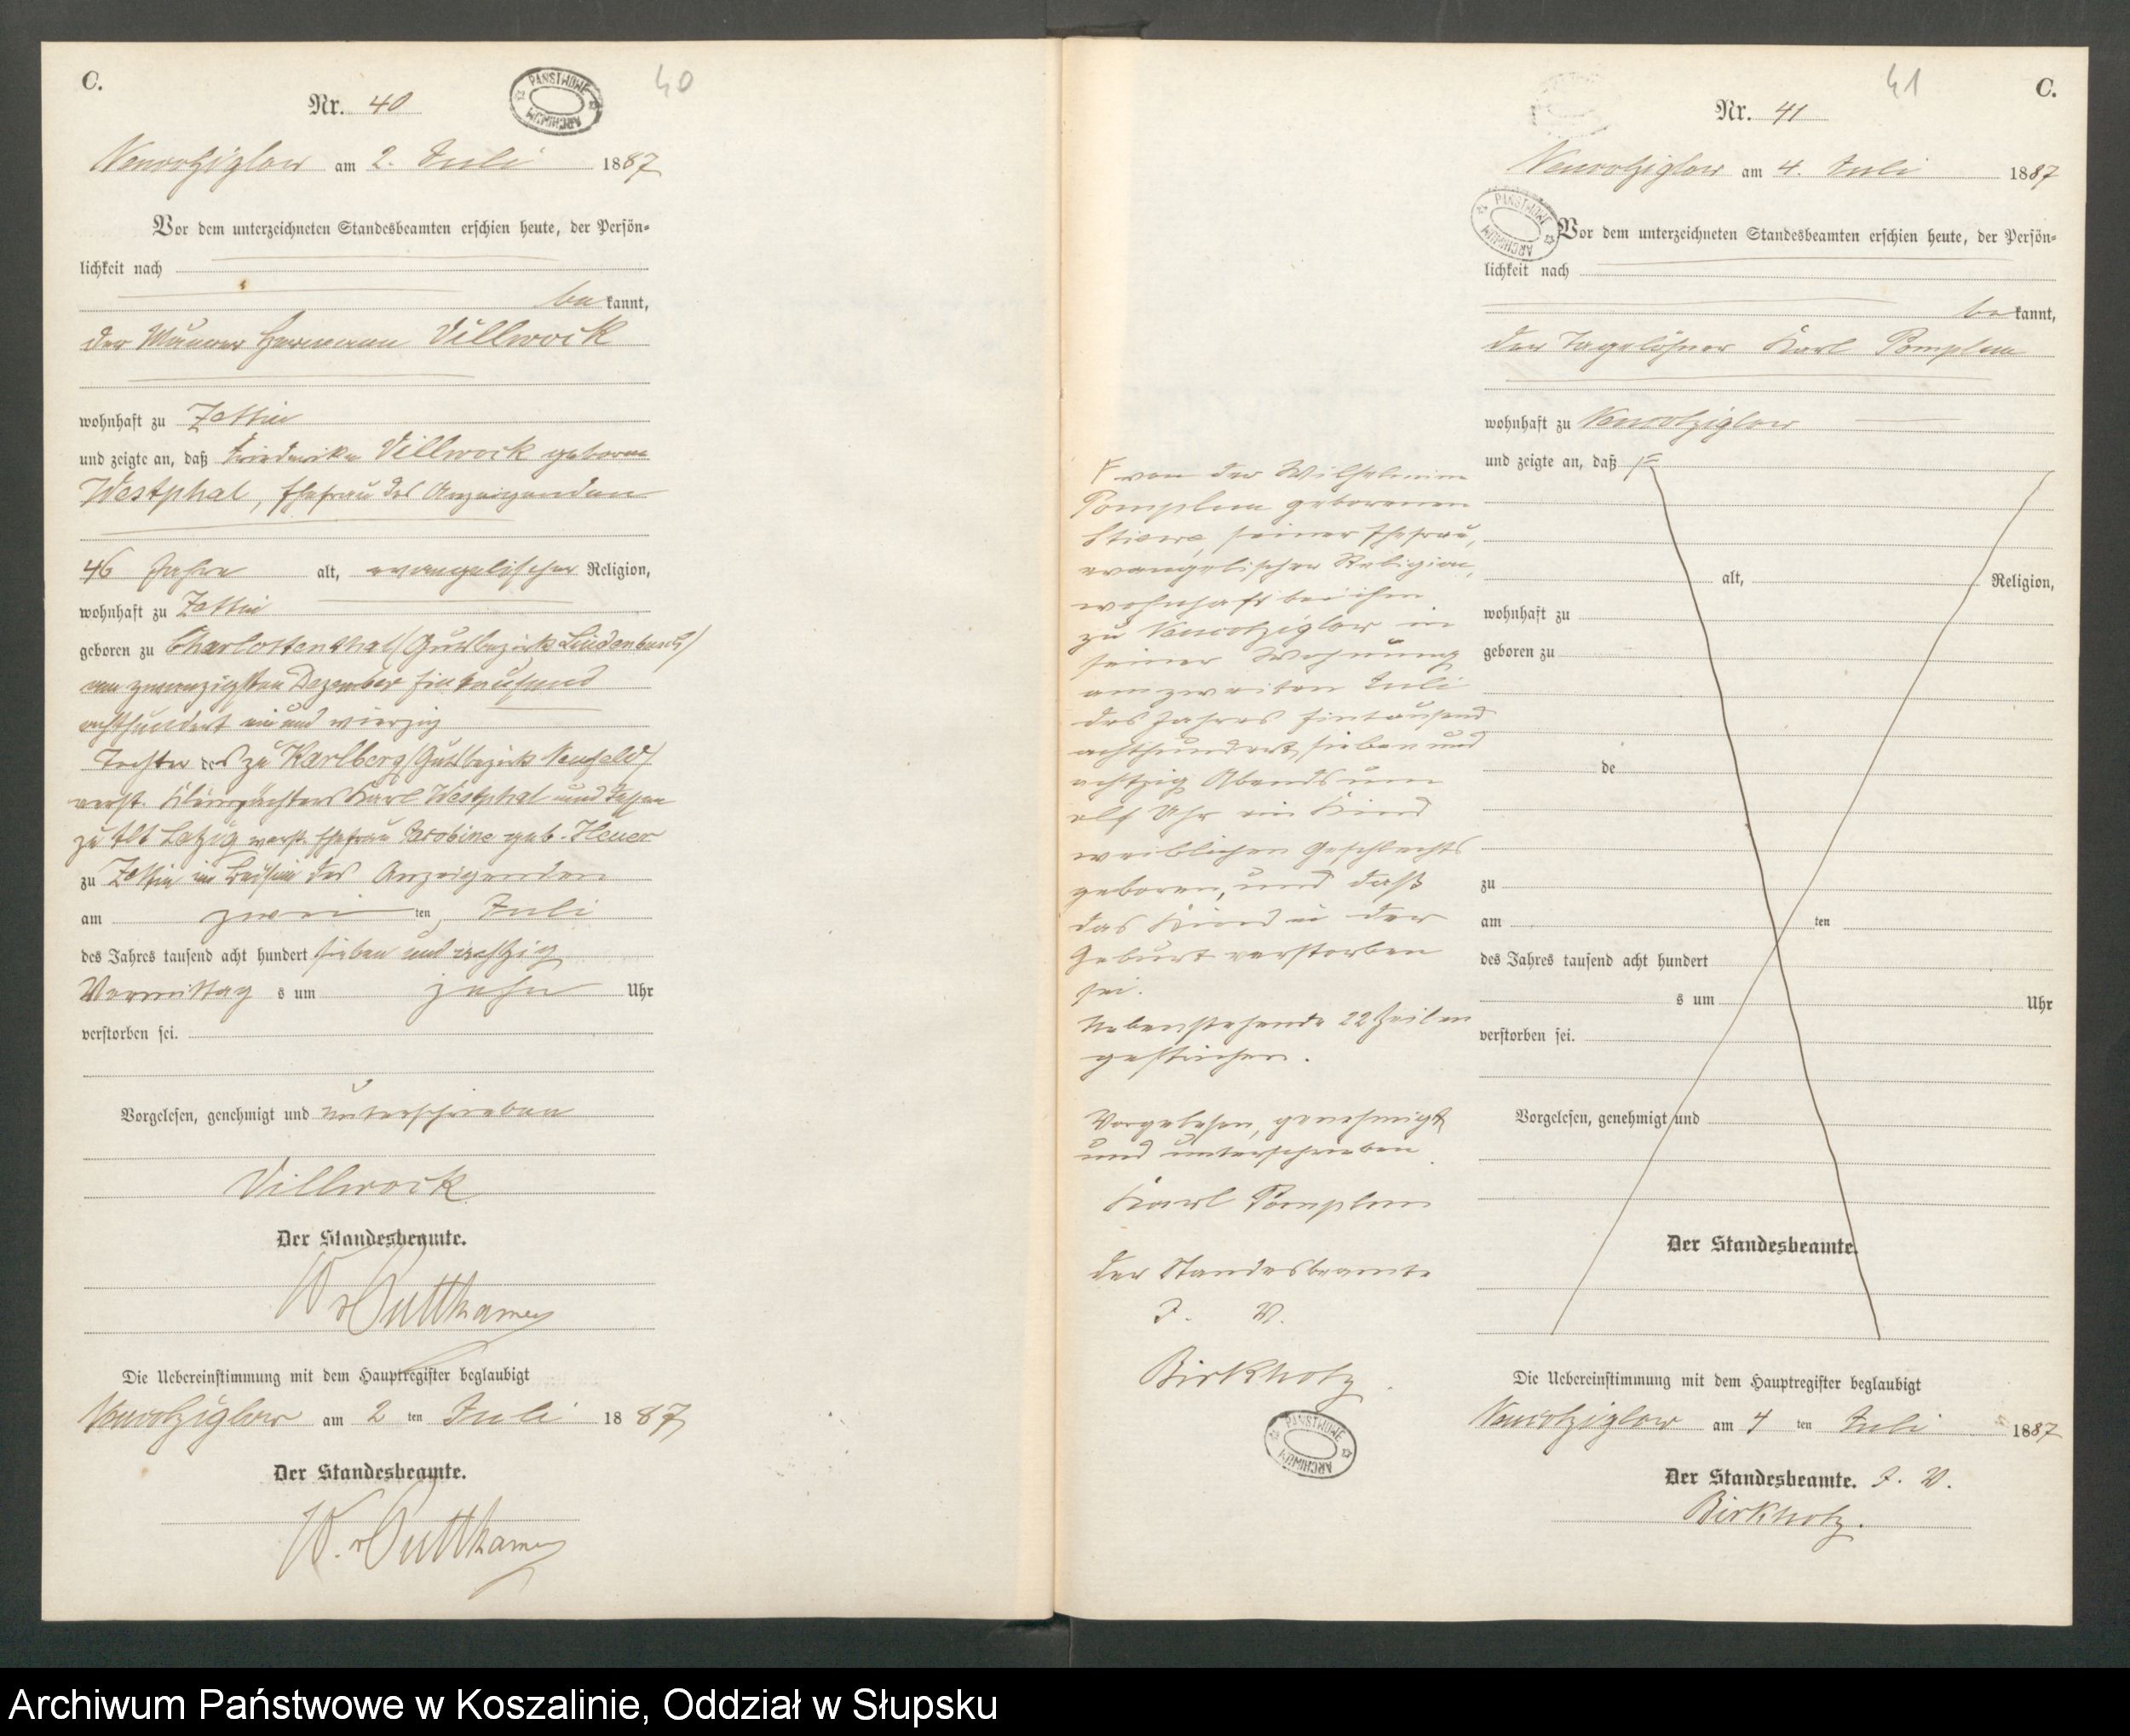 C.
Nr. 40
PAŃSTWOWE ARCHIWUM
40
am 2. Juli 1887
Vor dem unterzeichneten Standesbeamten erschien heute, der Persön-
lichkeit nach
be kannt,
der Maurer Hermann Villwock
wohnhaft zu Zettin
und zeigte an, daß Friederike Villwock geborne
Westphal, Ehefrau des Anzeigenden
46 Jahre alt, evangelischer Religion,
wohnhaft zu Zettin
geboren zu Charlottenthal (Gutsbezirk Lindenbusch)
am zwanzigsten Dezember Eintausend
achthundert ein und vierzig
Tochter des zu Karlberg (Gutsbezirk Neufeld)
verst. Karl Westphal und dessen
zu Alt verst. Ehefrau geb. Heuer
zu Zettin im Beisein des Anzeigenden
am zwei ten Juli
des Jahres tausend acht hundert sieben und achtzig
Vormittag s um zehn Uhr
verstorben sei.
Vorgelesen, genehmigt und unterschrieben
Villwock
Der Standesbeamte.
W v Puttkamer
Die Uebereinstimmung mit dem Hauptregister beglaubigt
am 2 ten Juli 18 87
Der Standesbeamte.
W. v Puttkamer
41
C.
Nr. 41
am 4. Juli 1887
PAŃSTWOWE ARCHIWUM
Vor dem unterzeichneten Standesbeamten erschien heute, der Persön-
lichkeit nach
be kannt,
der Tagelöhner Karl Pomplun
wohnhaft zu
und zeigte an, daß
alt, Religion,
wohnhaft zu
geboren zu
de
zu
am ten
des Jahres tausend acht hundert
s um Uhr
verstorben sei.
Vorgelesen, genehmigt und
Der Standesbeamte.
von der Wilhelmine
Pomplun geborenen
seiner Ehefrau,
evangelischer Religion,
wohnhaft bei ihm
zu in
seiner Wohnung
am zweiten Juli
des Jahres Eintausend
achthundert sieben und
achtzig Abends um
elf Uhr ein Kind
weiblichen Geschlechts
geboren, und daß
das Kind in der
Geburt verstorben
sei.
Nebenstehende 22 Zeilen
gestrichen.
Vorgelesen, genehmigt
und unterschrieben
Karl Pomplun
Der Standesbeamte
I. V.
Birkholz.
PAŃSTWOWE ARCHIWUM
Die Uebereinstimmung mit dem Hauptregister beglaubigt
am 4 ten Juli 1887
Der Standesbeamte. I. V.
Birkholz.
Archiwum Państwowe w Koszalinie, Oddział w Słupsku